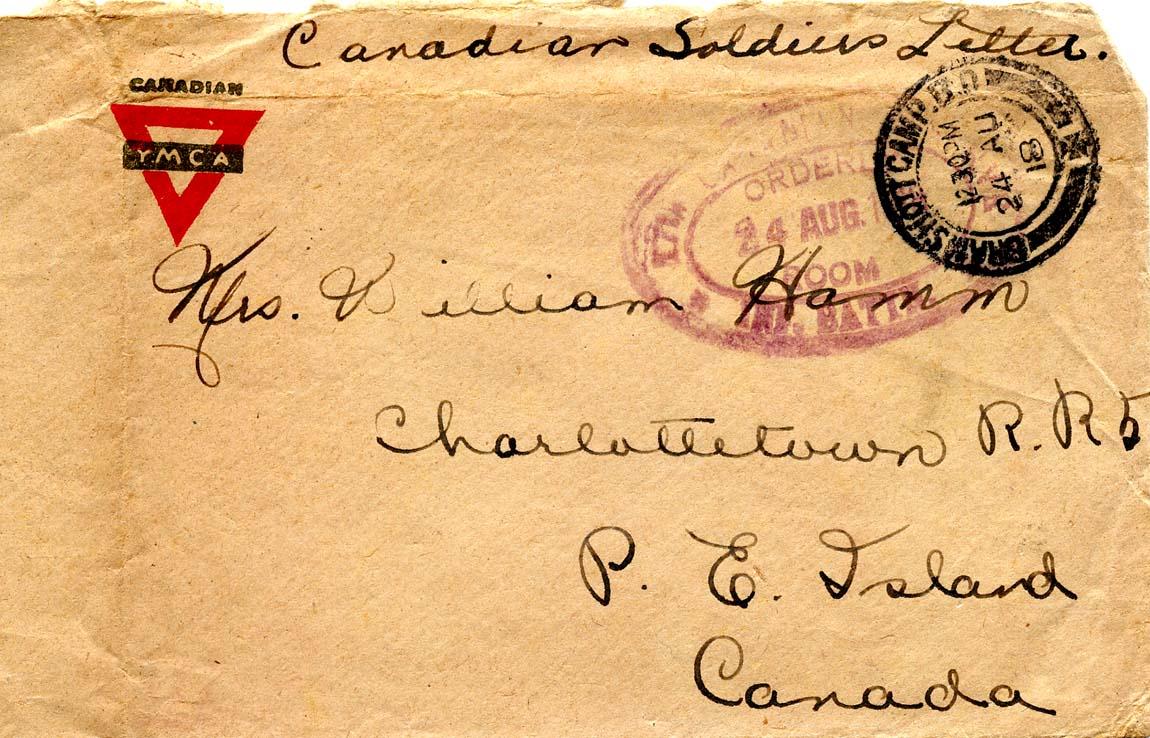 Canadian Soldiers Letter.
CANADIAN
YMCA
BRAMSHOTT CAMP. B.O
1230 PM
24 AU
18
ORDERLY
24 AUG. 1
ROOM
INF. BATT
Mrs. William Hamm
Charlottetown R. R 5
P. E. Island
Canada